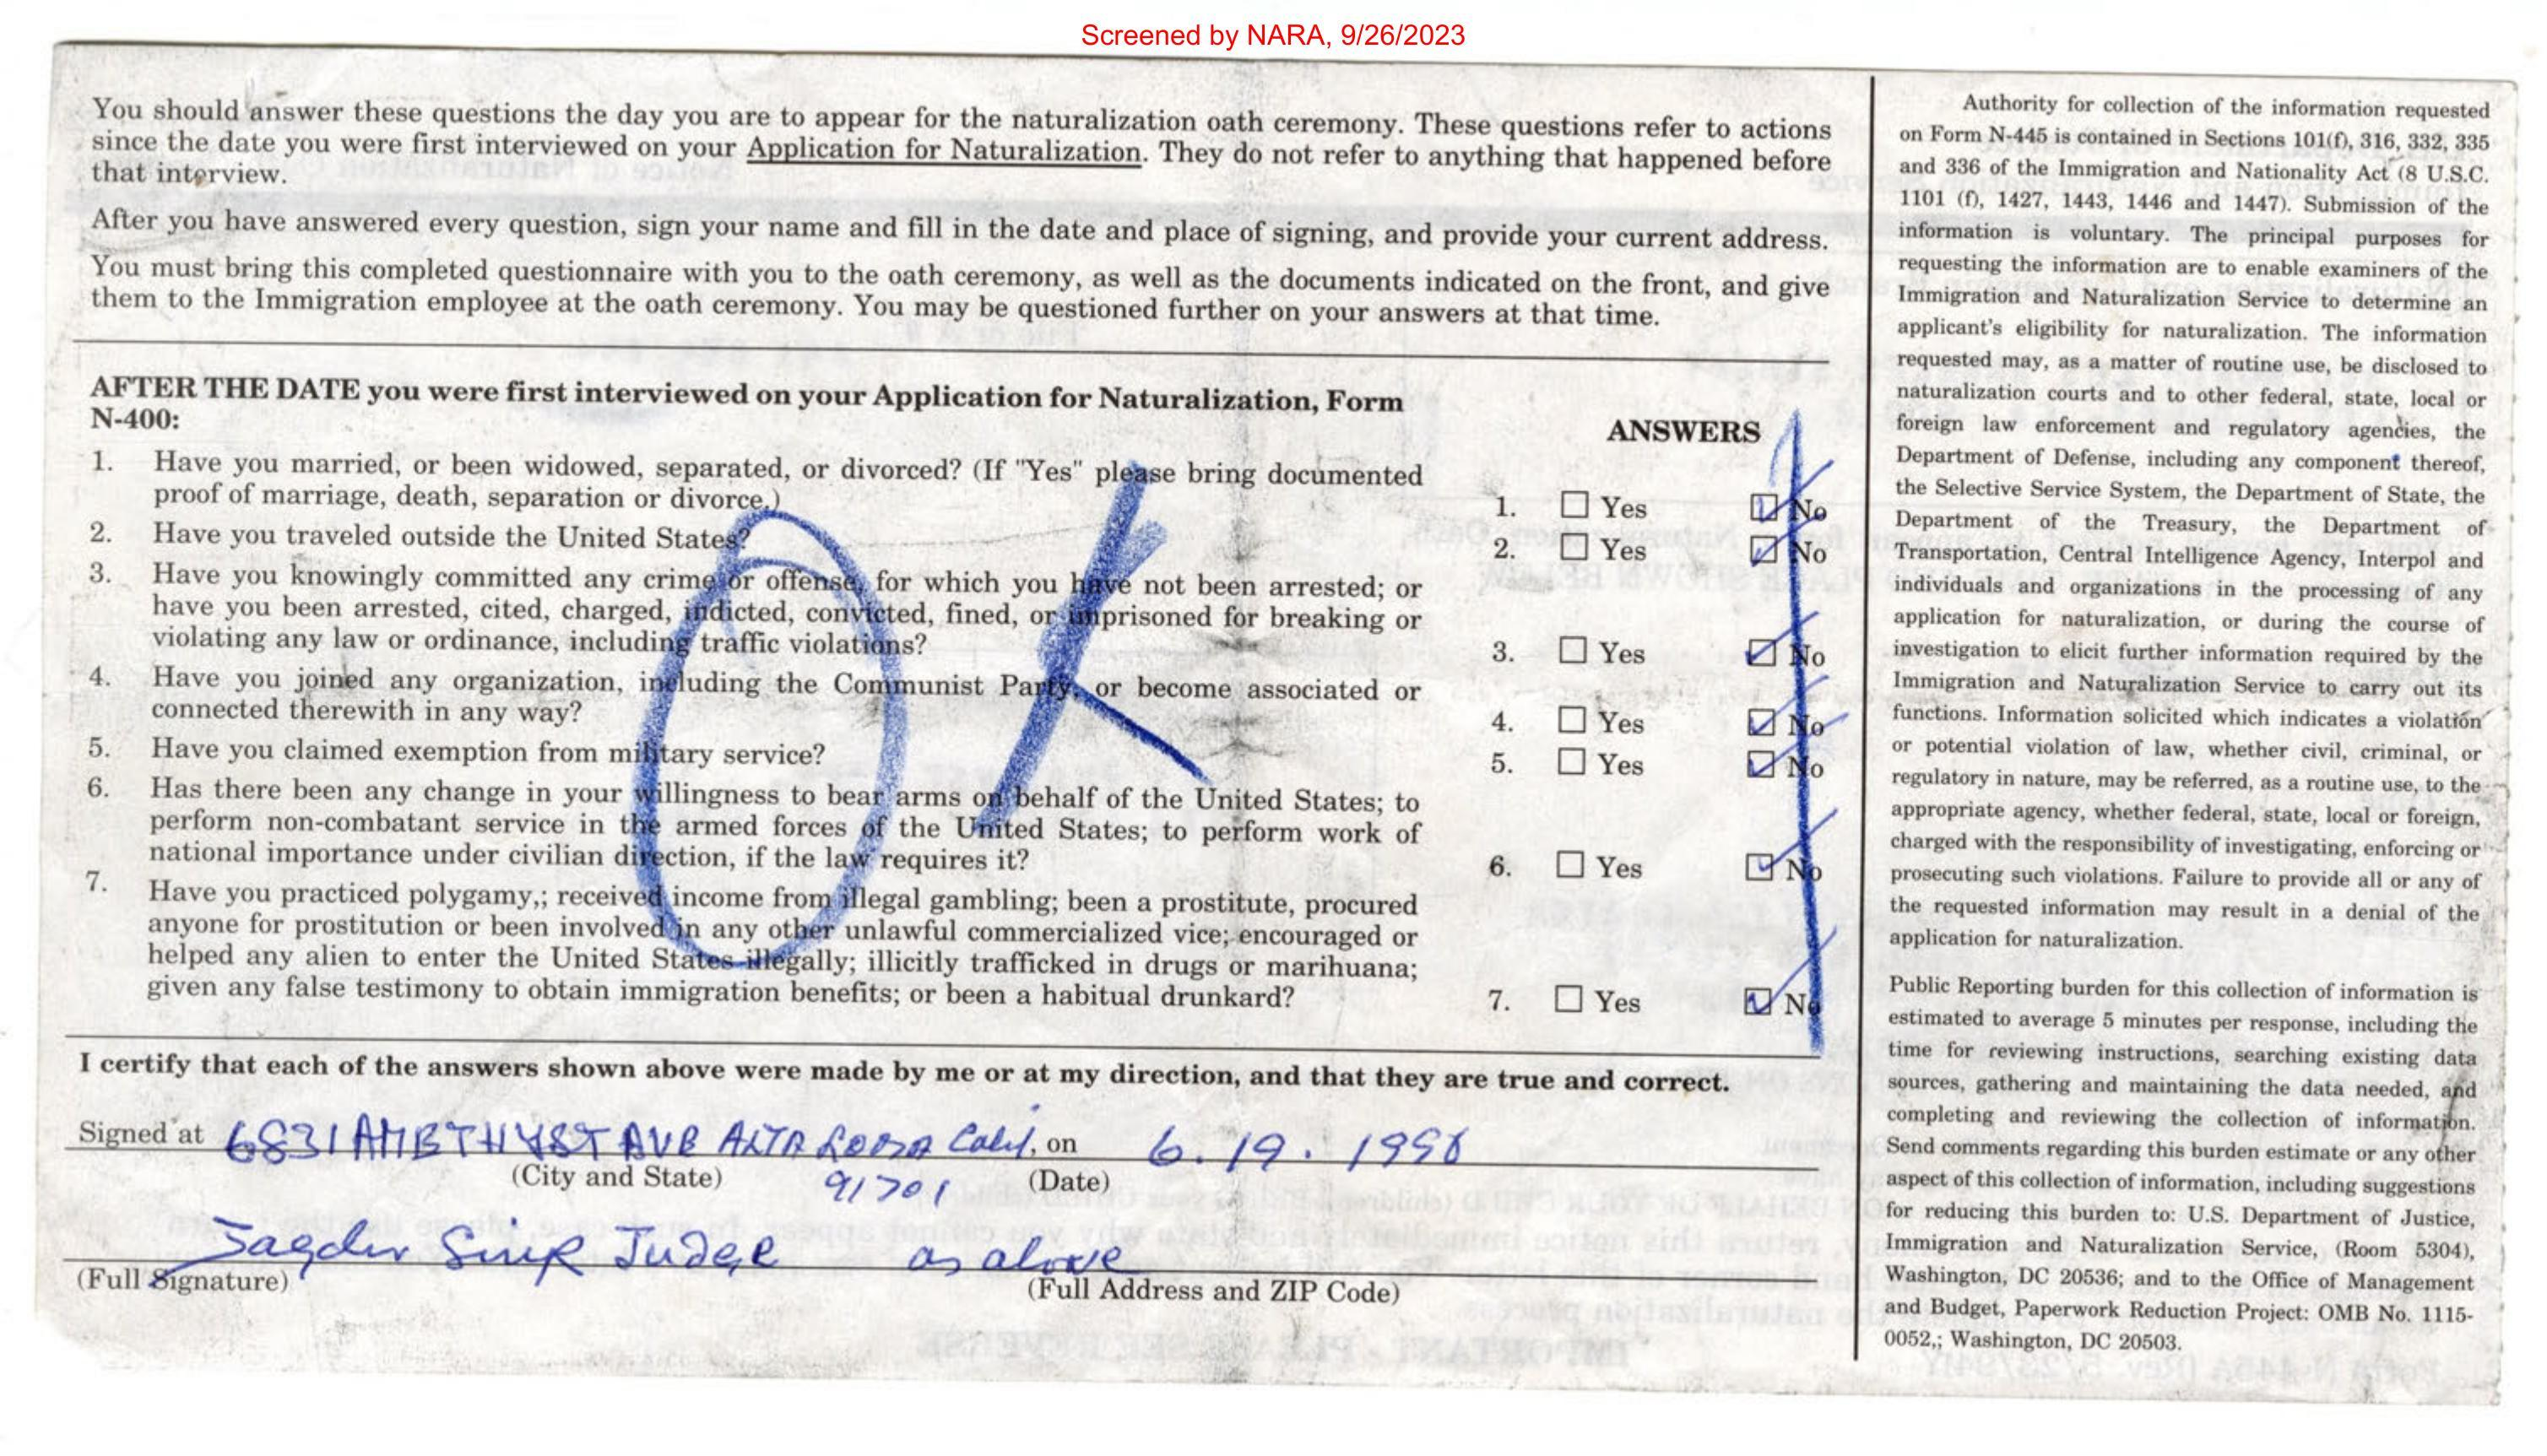 Screened by NARA, 9/26/2023
You should answer these questions the day you are to appear for the naturalization oath ceremony. These questions refer to actions
since the date you were first interviewed on your Application for Naturalization. They do not refer to anything that happened before
that interview.
After you have answered every question, sign your name and fill in the date and place of signing, and provide your current address.
You must bring this completed questionnaire with you to the oath ceremony, as well as the documents indicated on the front, and give
them to the Immigration employee at the oath ceremony. You may be questioned further on your answers at that time.
AFTER THE DATE you were first interviewed on your Application for Naturalization, Form
N-400:
ANSWERS
1. Have you married, or been widowed, separated, or divorced? (If "Yes" please bring documented
proof of marriage, death, separation or divorce.)
1. Yes No
2. Have you traveled outside the United States?
2. Yes No
3. Have you knowingly committed any crime or offense, for which you have not been arrested; or
have you been arrested, cited, charged, indicted, convicted, fined, or imprisoned for breaking or
violating any law or ordinance, including traffic violations?
3. Yes No
4. Have you joined any organization, including the Communist Party, or become associated or
connected therewith in any way?
4. Yes No
5. Have you claimed exemption from military service?
5. Yes No
6. Has there been any change in your willingness to bear arms on behalf of the United States; to
perform non-combatant service in the armed forces of the United States; to perform work of
national importance under civilian direction, if the law requires it?
6. Yes No
7. Have you practiced polygamy,; received income from illegal gambling; been a prostitute, procured
anyone for prostitution or been involved in any other unlawful commercialized vice; encouraged or
helped any alien to enter the United States illegally; illicitly trafficked in drugs or marihuana;
given any false testimony to obtain immigration benefits; or been a habitual drunkard?
7. Yes No
OK
I certify that each of the answers shown above were made by me or at my direction, and that they are true and correct.
Signed at 6831 AMETHYST AVE ALTA LOMA Calif, on 6.19.1996
(City and State) 91701 (Date)
Jagdev Singh Judge as above
(Full Signature) (Full Address and ZIP Code)
Authority for collection of the information requested
on Form N-445 is contained in Sections 101(f), 316, 332, 335
and 336 of the Immigration and Nationality Act (8 U.S.C.
1101 (f), 1427, 1443, 1446 and 1447). Submission of the
information is voluntary. The principal purposes for
requesting the information are to enable examiners of the
Immigration and Naturalization Service to determine an
applicant's eligibility for naturalization. The information
requested may, as a matter of routine use, be disclosed to
naturalization courts and to other federal, state, local or
foreign law enforcement and regulatory agencies, the
Department of Defense, including any component thereof,
the Selective Service System, the Department of State, the
Department of the Treasury, the Department of
Transportation, Central Intelligence Agency, Interpol and
individuals and organizations in the processing of any
application for naturalization, or during the course of
investigation to elicit further information required by the
Immigration and Naturalization Service to carry out its
functions. Information solicited which indicates a violation
or potential violation of law, whether civil, criminal, or
regulatory in nature, may be referred, as a routine use, to the
appropriate agency, whether federal, state, local or foreign,
charged with the responsibility of investigating, enforcing or
prosecuting such violations. Failure to provide all or any of
the requested information may result in a denial of the
application for naturalization.
Public Reporting burden for this collection of information is
estimated to average 5 minutes per response, including the
time for reviewing instructions, searching existing data
sources, gathering and maintaining the data needed, and
completing and reviewing the collection of information.
Send comments regarding this burden estimate or any other
aspect of this collection of information, including suggestions
for reducing this burden to: U.S. Department of Justice,
Immigration and Naturalization Service, (Room 5304),
Washington, DC 20536; and to the Office of Management
and Budget, Paperwork Reduction Project: OMB No. 1115-
0052,; Washington, DC 20503.